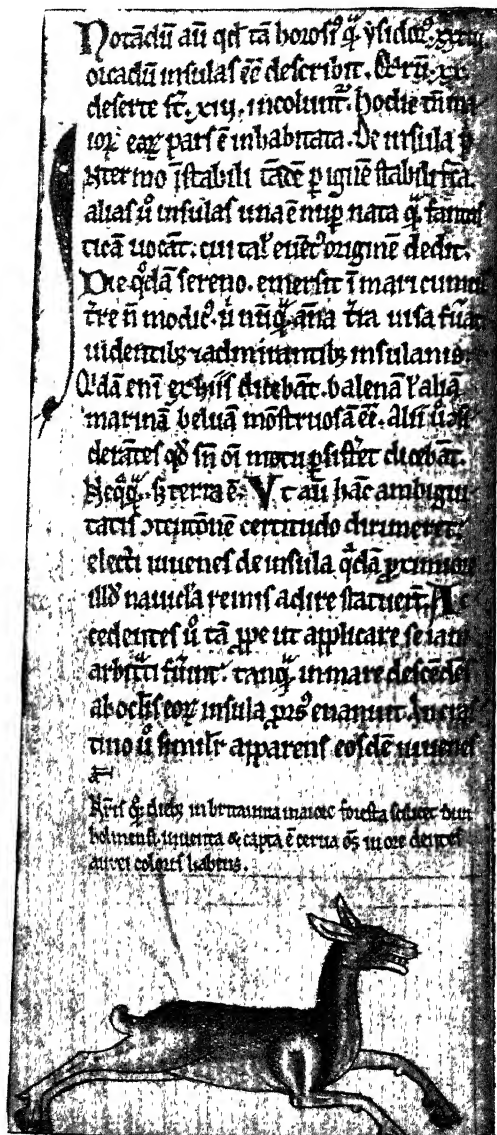 Notādū aū qđ tā horosiꝰ q̄ ysidorꝰ xxxiij
orcadū insulas eē describit. Q̄rū .xx.
deserte st̄ .xiij. incolunt᷑. hodie tn̄ ma
ior eaꝝ pars ē inhabitata. De insula p
Nter mo īstabili tādē p ignē stabili fc̄a.
alias ū insulas una ē nuꝑ nata q̄ fantas
ticā uocāt. cui tal᷒ euētꝰ originē dedit.
Die q̄dā sereno. emersit ī mari cumul
t̄re n̄ modicꝰ. ů nūq̄ ān̄a t̄ra uisa fūat
uidentibꝫ ⁊ admirantibꝫ insulanis
Qidā eni ex hiis dicebāt. balenā ł aliā
marinā beluā mōstruosā eē. Alii ū ↄsi
derātes qđ sn̄ oī motu ꝑsistret dicebāt.
Neq̄q̄. sꝫ terra ē. Vt aū hāc ambigui
tatis ↄtētiōnē certitudo dirimeret.
electi iuuenes de insula q̄dā ꝓximiore
illđ nauicl̄a remis adire statuer̄t. Ac
cedentes ū tā ꝓpe ut applicare se iam
arbit̄ti fūint. tanq̄ in mare descēdēs
ab ocl̄is eoꝝ insula ꝓrsꝰ euanuit. In cras
tino ū simil᷑r apparens eosdē iuuenes
Nr̄is q̄ꝫ diebꝫ in britannia maiore foresta scilicet dun
holmensi. inuenta & capta ē cerua oēs in ore dentes
aurei coloris habens.